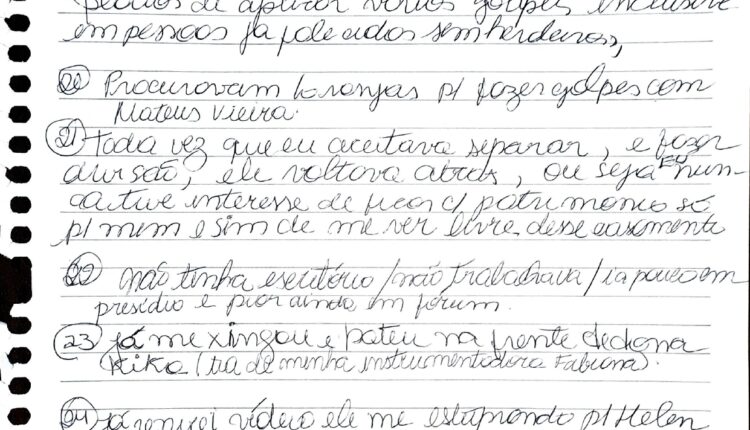 pedidos de aplicar vários golpes, inclusive
em pessoas já falecidas sem herdeiros,
20 Procuravam laranjas p/ fazer golpes com
Mateus Vieira.
21 Toda vez que eu aceitava separar, e fazer
divisão, ele voltava atrás, ou seja EU nun-
ca tive interesse de ficar c/ patrimonio só
p/ mim e sim de me ver livre desse casamento
22 não tinha escritório / não trabalhava / ia pouco em
presídio e pior ainda em fórum.
23 já me xingou e bateu na frente de dona
Kika (tia de minha instrumentadora Fabiana).
24 Já enviei vídeo ele me estuprando p/ Helen